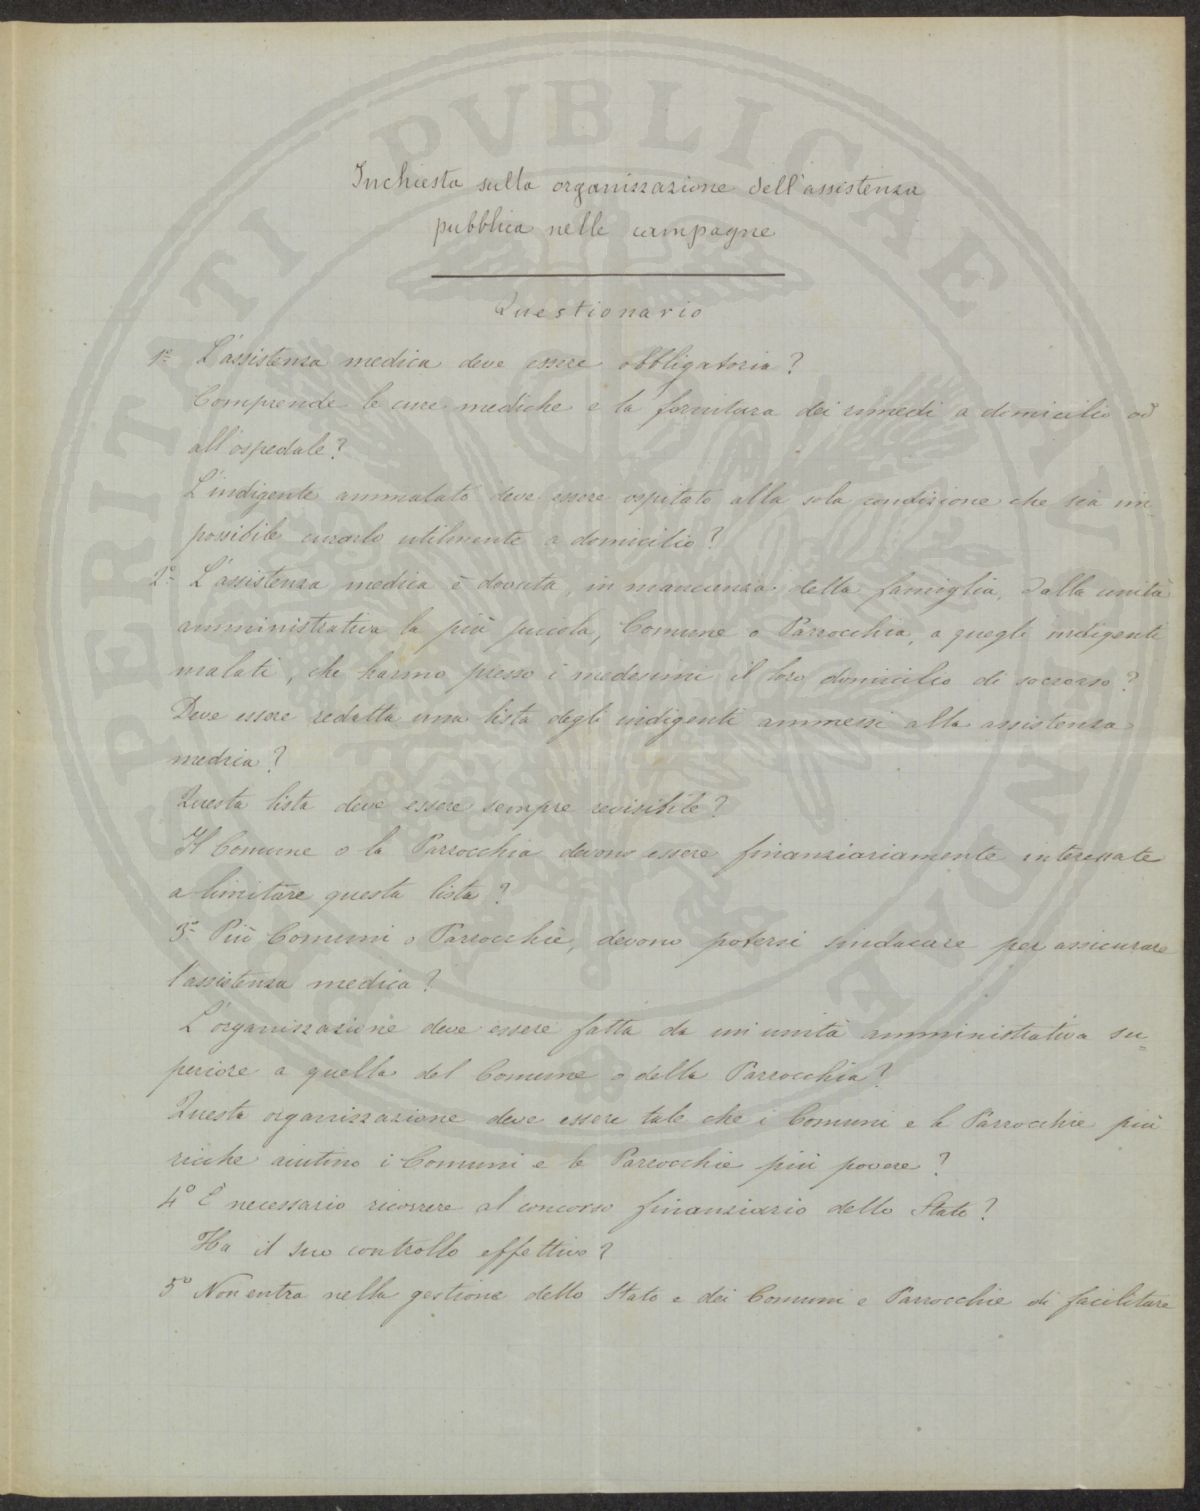 Inchiesta sulla organizzazione dell'assistenza
pubblica nelle campagne
Questionario
1º L'assistenza medica deve essere obbligatoria?
Comprende le cure mediche e la fornitura dei rimedi a domicilio od
all'ospedale?
L'indigente ammalato deve essere ospitato alla sola condizione che sia im-
possibile curarlo utilmente a domicilio?
2º L'assistenza medica è dovuta, in mancanza della famiglia, dalla unità
amministrativa la più piccola, Comune o Parrocchia, a quegli indigenti
malati, che hanno presso i medesimi il loro domicilio di soccorso?
Deve essere redatta una lista degli indigenti ammessi alla assistenza
medica?
Questa lista deve essere sempre revisibile?
Il Comune o la Parrocchia devono essere finanziariamente interessate
a limitare questa lista?
3º Più Comuni o Parrocchie, devono potersi sindacare per assicurare
l'assistenza medica?
L'organizzazione deve essere fatta da un'unità amministrativa su=
periore a quella del Comune o della Parrocchia?
Questa organizzazione deve essere tale che i Comuni e le Parrocchie più
ricche aiutino i Comuni e le Parrocchie più povere?
4º È necessario ricorrere al concorso finanziario dello Stato?
Ha il suo controllo effettivo?
5º Non entra nella gestione dello Stato e dei Comuni e Parrocchie di facilitare
PROSPERITATI PVBLICAE AVGENDAE